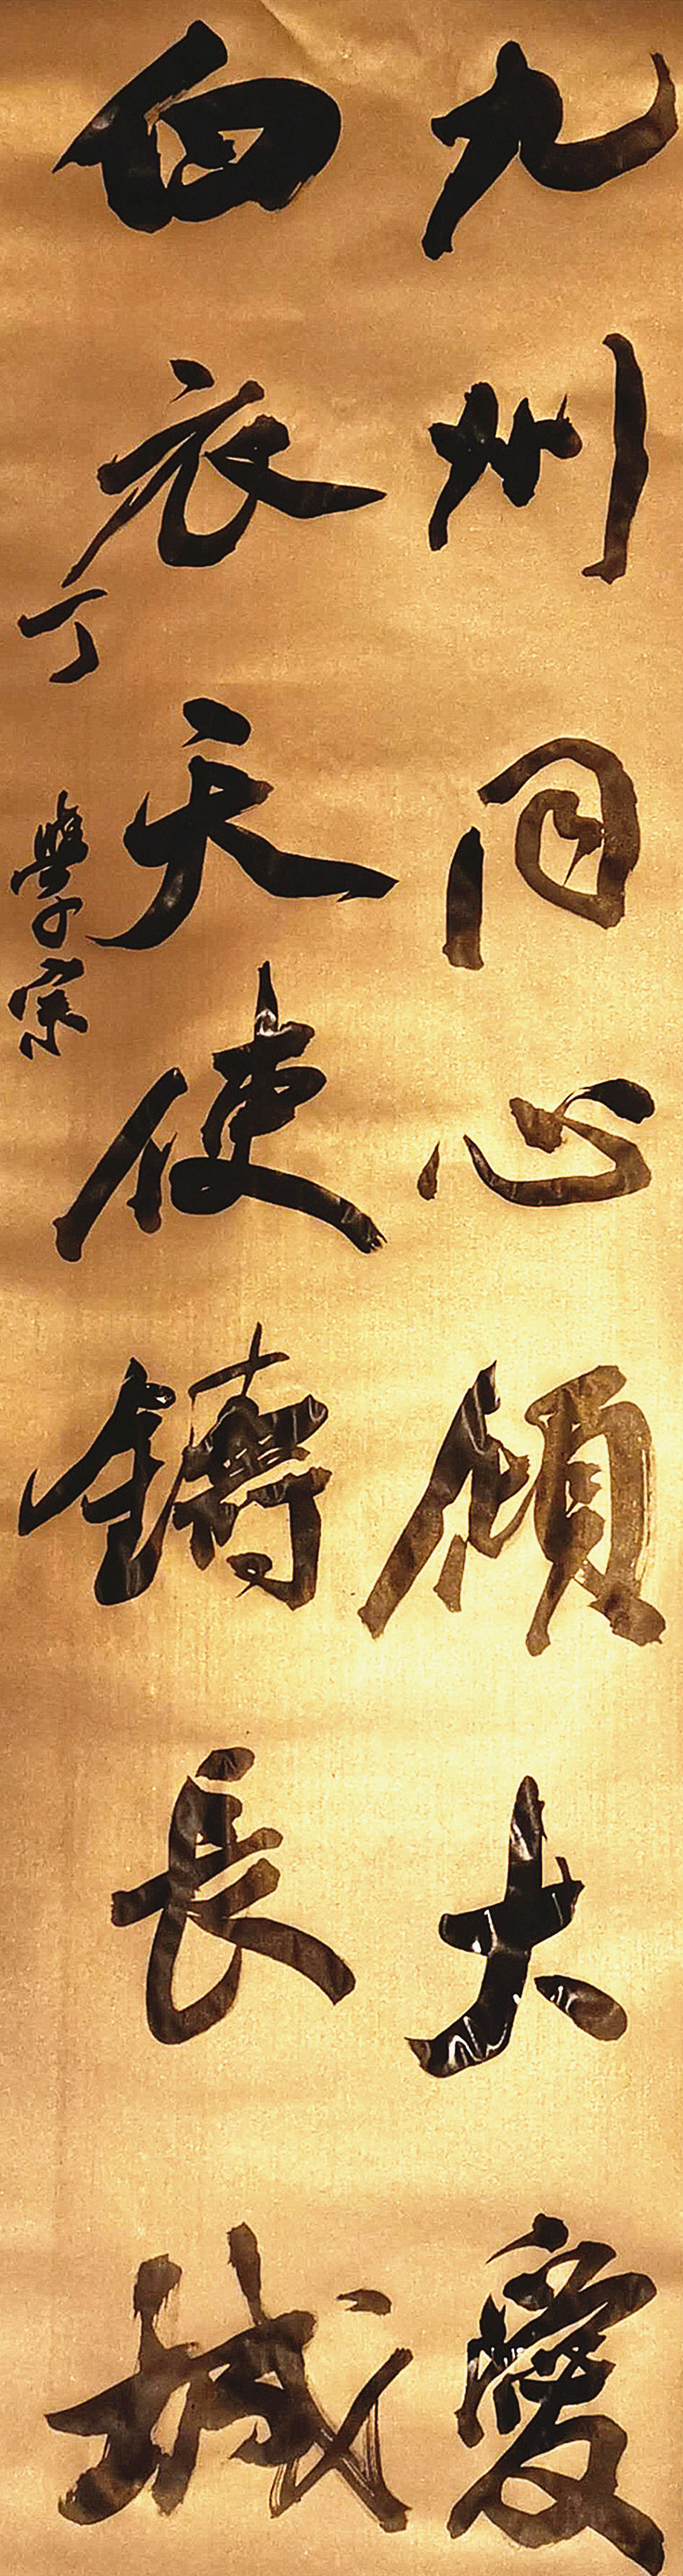 九州同心傾大愛
白衣天使鑄長城
丁學宗